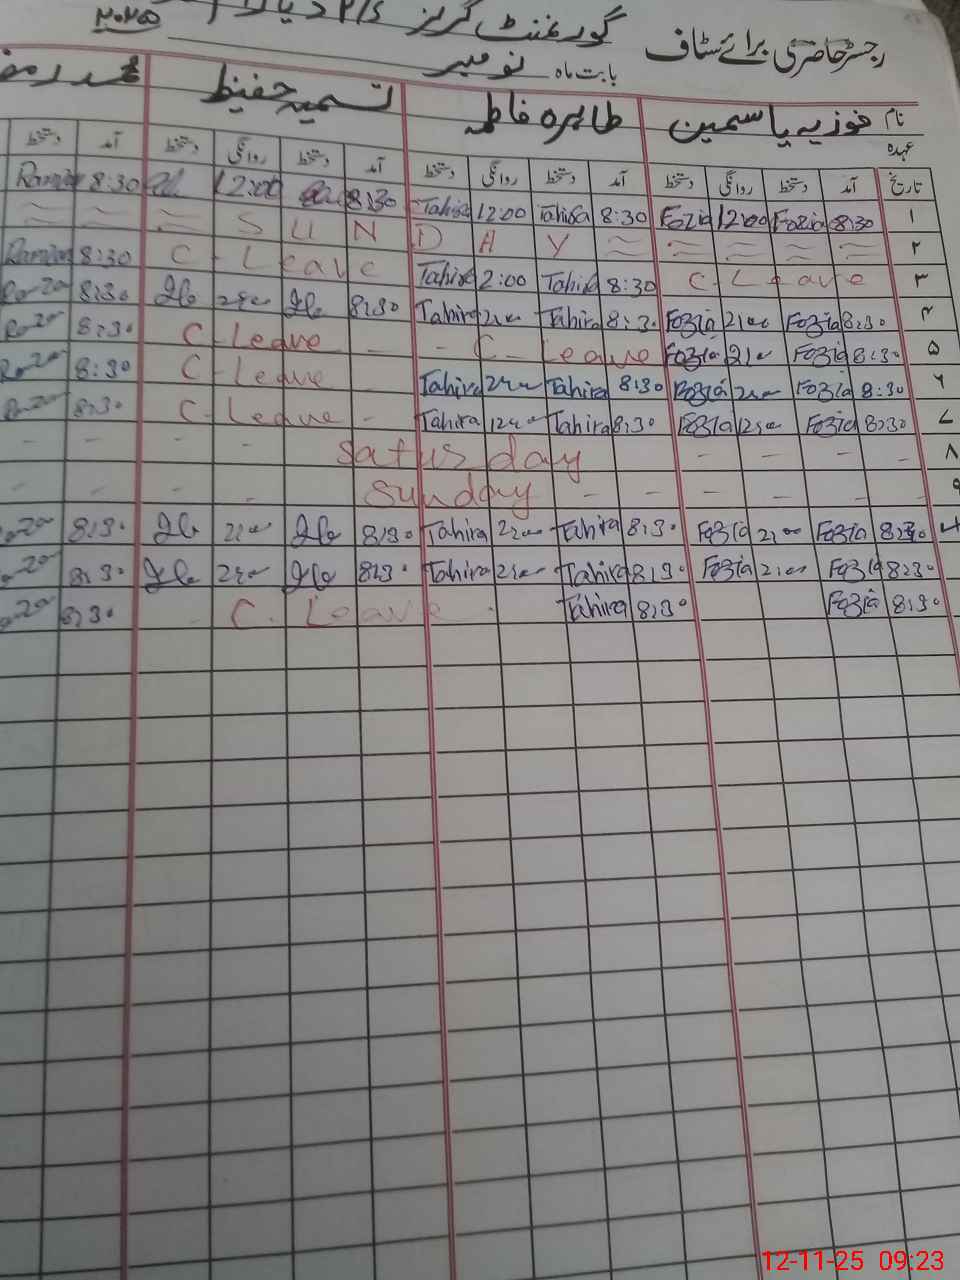 رجسٹر حاضری برائے سٹاف گورنمنٹ گرلز P/S
بابت ماہ نومبر ۲۰۲۵
نام فوزیہ یاسمین طاہرہ فاطمہ تسمیہ حفیظ
عہدہ
تاریخ آمد دستخط روانگی دستخط آمد دستخط روانگی دستخط آمد دستخط روانگی دستخط آمد دستخط
۱ 8:30 Fozia 12:00 Fozia 8:30 Tahira 12:00 Tahira 8:30 12:00 8:30
۲ S U N D A Y
۳ C-Leave 8:30 Tahira 2:00 Tahira C-Leave 8:30
۴ 8:30 Fozia 2:00 Fozia 8:30 Tahira 2:00 Tahira 8:30 2:00 8:30
۵ 8:30 Fozia 2:00 Fozia C-Leave C-Leave 8:30
۶ 8:30 Fozia 2:00 Fozia 8:30 Tahira 2:00 Tahira C-Leave 8:30
۷ 8:30 Fozia 12:00 Fozia 8:30 Tahira 12:00 Tahira C-Leave 8:30
۸ Saturday
۹ Sunday
8:30 Fozia 2:00 Fozia 8:30 Tahira 2:00 Tahira 8:30 2:00 8:30
8:30 Fozia 2:00 Fozia 8:30 Tahira 2:00 Tahira 8:30 2:00 8:30
8:30 Fozia 8:30 Tahira C-Leave 8:30
12-11-25 09:23